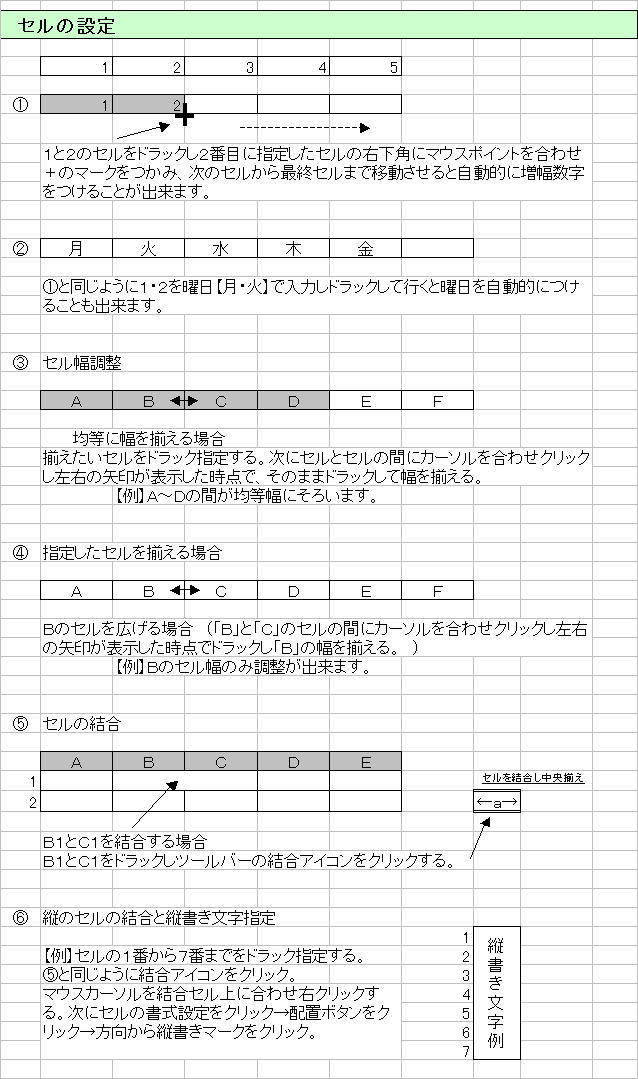 セルの設定
1 2 3 4 5
① 1 2
1と2のセルをドラックし2番目に指定したセルの右下角にマウスポイントを合わせ
+のマークをつかみ、次のセルから最終セルまで移動させると自動的に増幅数字
をつけることが出来ます。
② 月 火 水 木 金
①と同じように1・2を曜日【月・火】で入力しドラックして行くと曜日を自動的につけ
ることも出来ます。
③ セル幅調整
A B C D E F
均等に幅を揃える場合
揃えたいセルをドラック指定する。次にセルとセルの間にカーソルを合わせクリック
し左右の矢印が表示した時点で、そのままドラックして幅を揃える。
【例】A～Dの間が均等幅にそろいます。
④ 指定したセルを揃える場合
A B C D E F
Bのセルを広げる場合 (「B」と「C」のセルの間にカーソルを合わせクリックし左右
の矢印が表示した時点でドラックし「B」の幅を揃える。 )
【例】Bのセル幅のみ調整が出来ます。
⑤ セルの結合
A B C D E
1
セルを結合し中央揃え
2
←a→
B1とC1を結合する場合
B1とC1をドラックしツールバーの結合アイコンをクリックする。
⑥ 縦のセルの結合と縦書き文字指定
【例】セルの1番から7番までをドラック指定する。
⑤と同じように結合アイコンをクリック。
マウスカーソルを結合セル上に合わせ右クリックす
る。次にセルの書式設定をクリック→配置ボタンをク
リック→方向から縦書きマークをクリック。
1
2
3
4
5
6
7
縦書き文字例